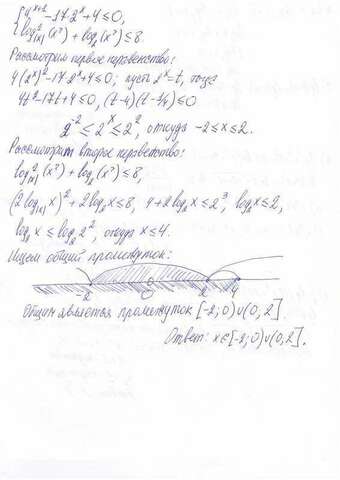 4^{x+1} - 17·2^x + 4 ≤ 0,
log²_{|x|}(x²) + log₂(x²) ≤ 8
Рассмотрим первое неравенство:
4(2^x)² - 17·2^x + 4 ≤ 0; пусть 2^x = t, тогда
4t² - 17t + 4 ≤ 0, (t-4)(t-1/4) ≤ 0
2^{-2} ≤ 2^x ≤ 2², откуда -2 ≤ x ≤ 2.
Рассмотрим второе неравенство:
log²_{|x|}(x²) + log₂(x²) ≤ 8,
(2log_{|x|} x)² + 2log₂x ≤ 8, 4 + 2log₂x ≤ 2³, log₂x ≤ 2,
log₂x ≤ log₂2², откуда x ≤ 4.
Ищем общий промежуток:
-2 0 2 4
Общим является промежуток [-2;0)∪(0,2].
Ответ: x∈[-2;0)∪(0,2].